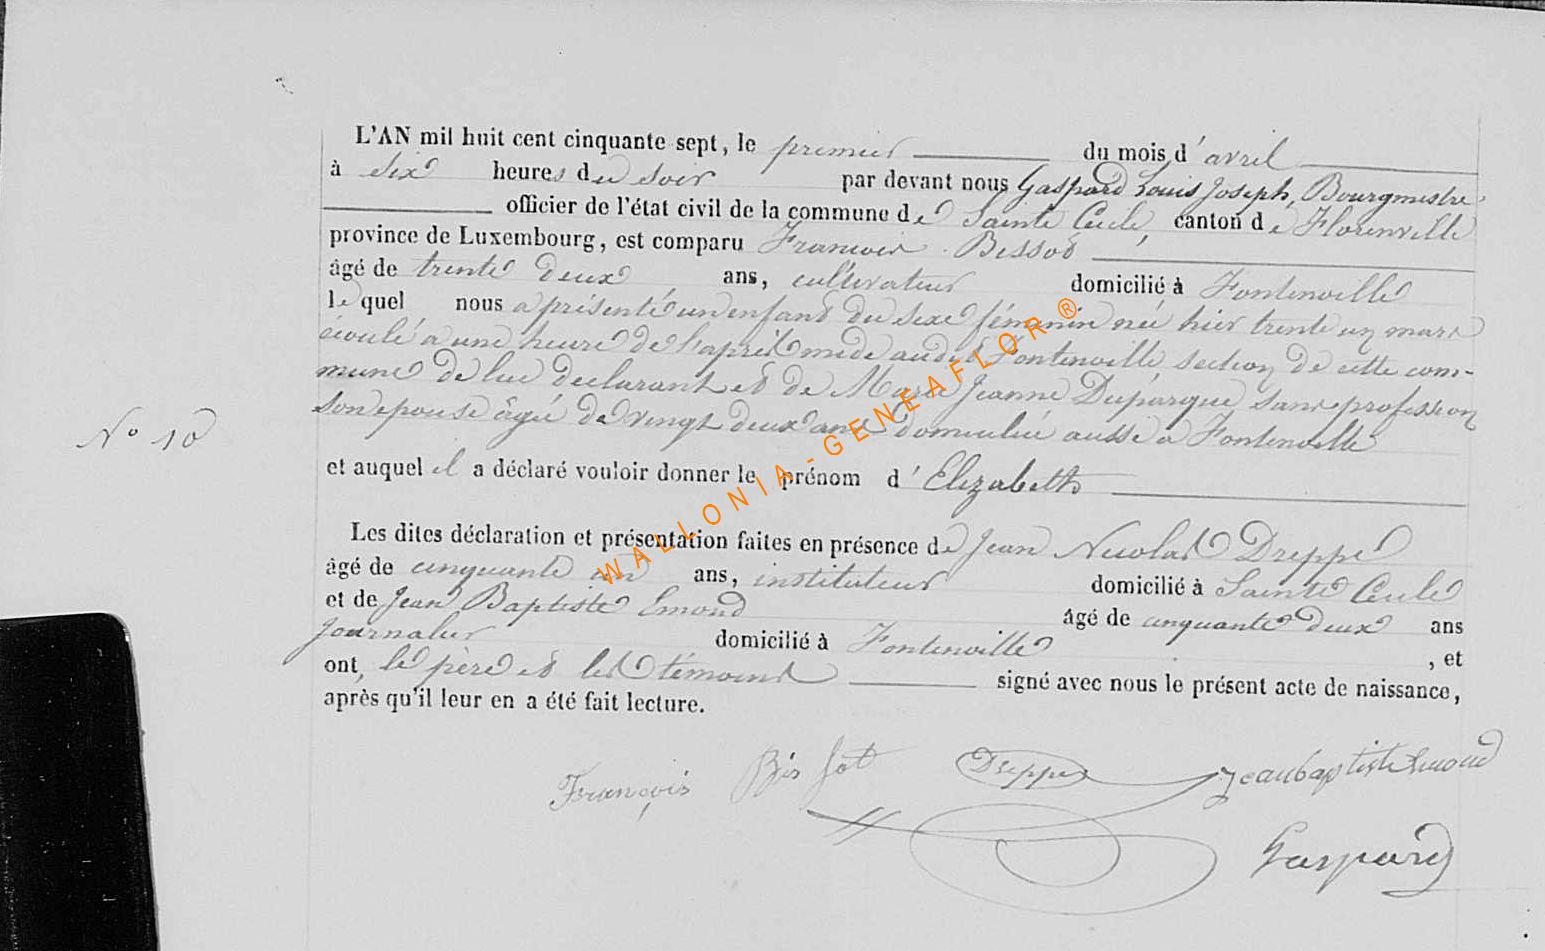 L'AN mil huit cent cinquante sept, le premier du mois d'avril
à six heures du soir par devant nous Gaspard Louis Joseph, Bourgmestre
officier de l'état civil de la commune de Sainte Cecile, canton de Florenville
province de Luxembourg, est comparu François Bissot
âgé de trente deux ans, cultivateur domicilié à Fontenoille
lequel nous a présenté un enfant du sexe féminin née hier trente un mars
écoulé à une heure de l'après midi audit Fontenoille, section de cette com-
mune de lui declarant et de Marie Jeanne Duparque, sans profession
son epouse âgée de vingt deux ans domiciliée aussi à Fontenoille
et auquel il a déclaré vouloir donner le prénom d'Elizabeth
Les dites déclaration et présentation faites en présence de Jean Nicolas Dreppe
âgé de cinquante un ans, instituteur domicilié à Sainte Cecile
et de Jean Baptiste Emond âgé de cinquante deux ans
journalier domicilié à Fontenoille, et
ont, le père et les témoins signé avec nous le présent acte de naissance,
après qu'il leur en a été fait lecture.
N° 10
François Bissot Dreppe Jeanbaptiste Emond
Gaspard
WALLONIA-GENEAFLOR®